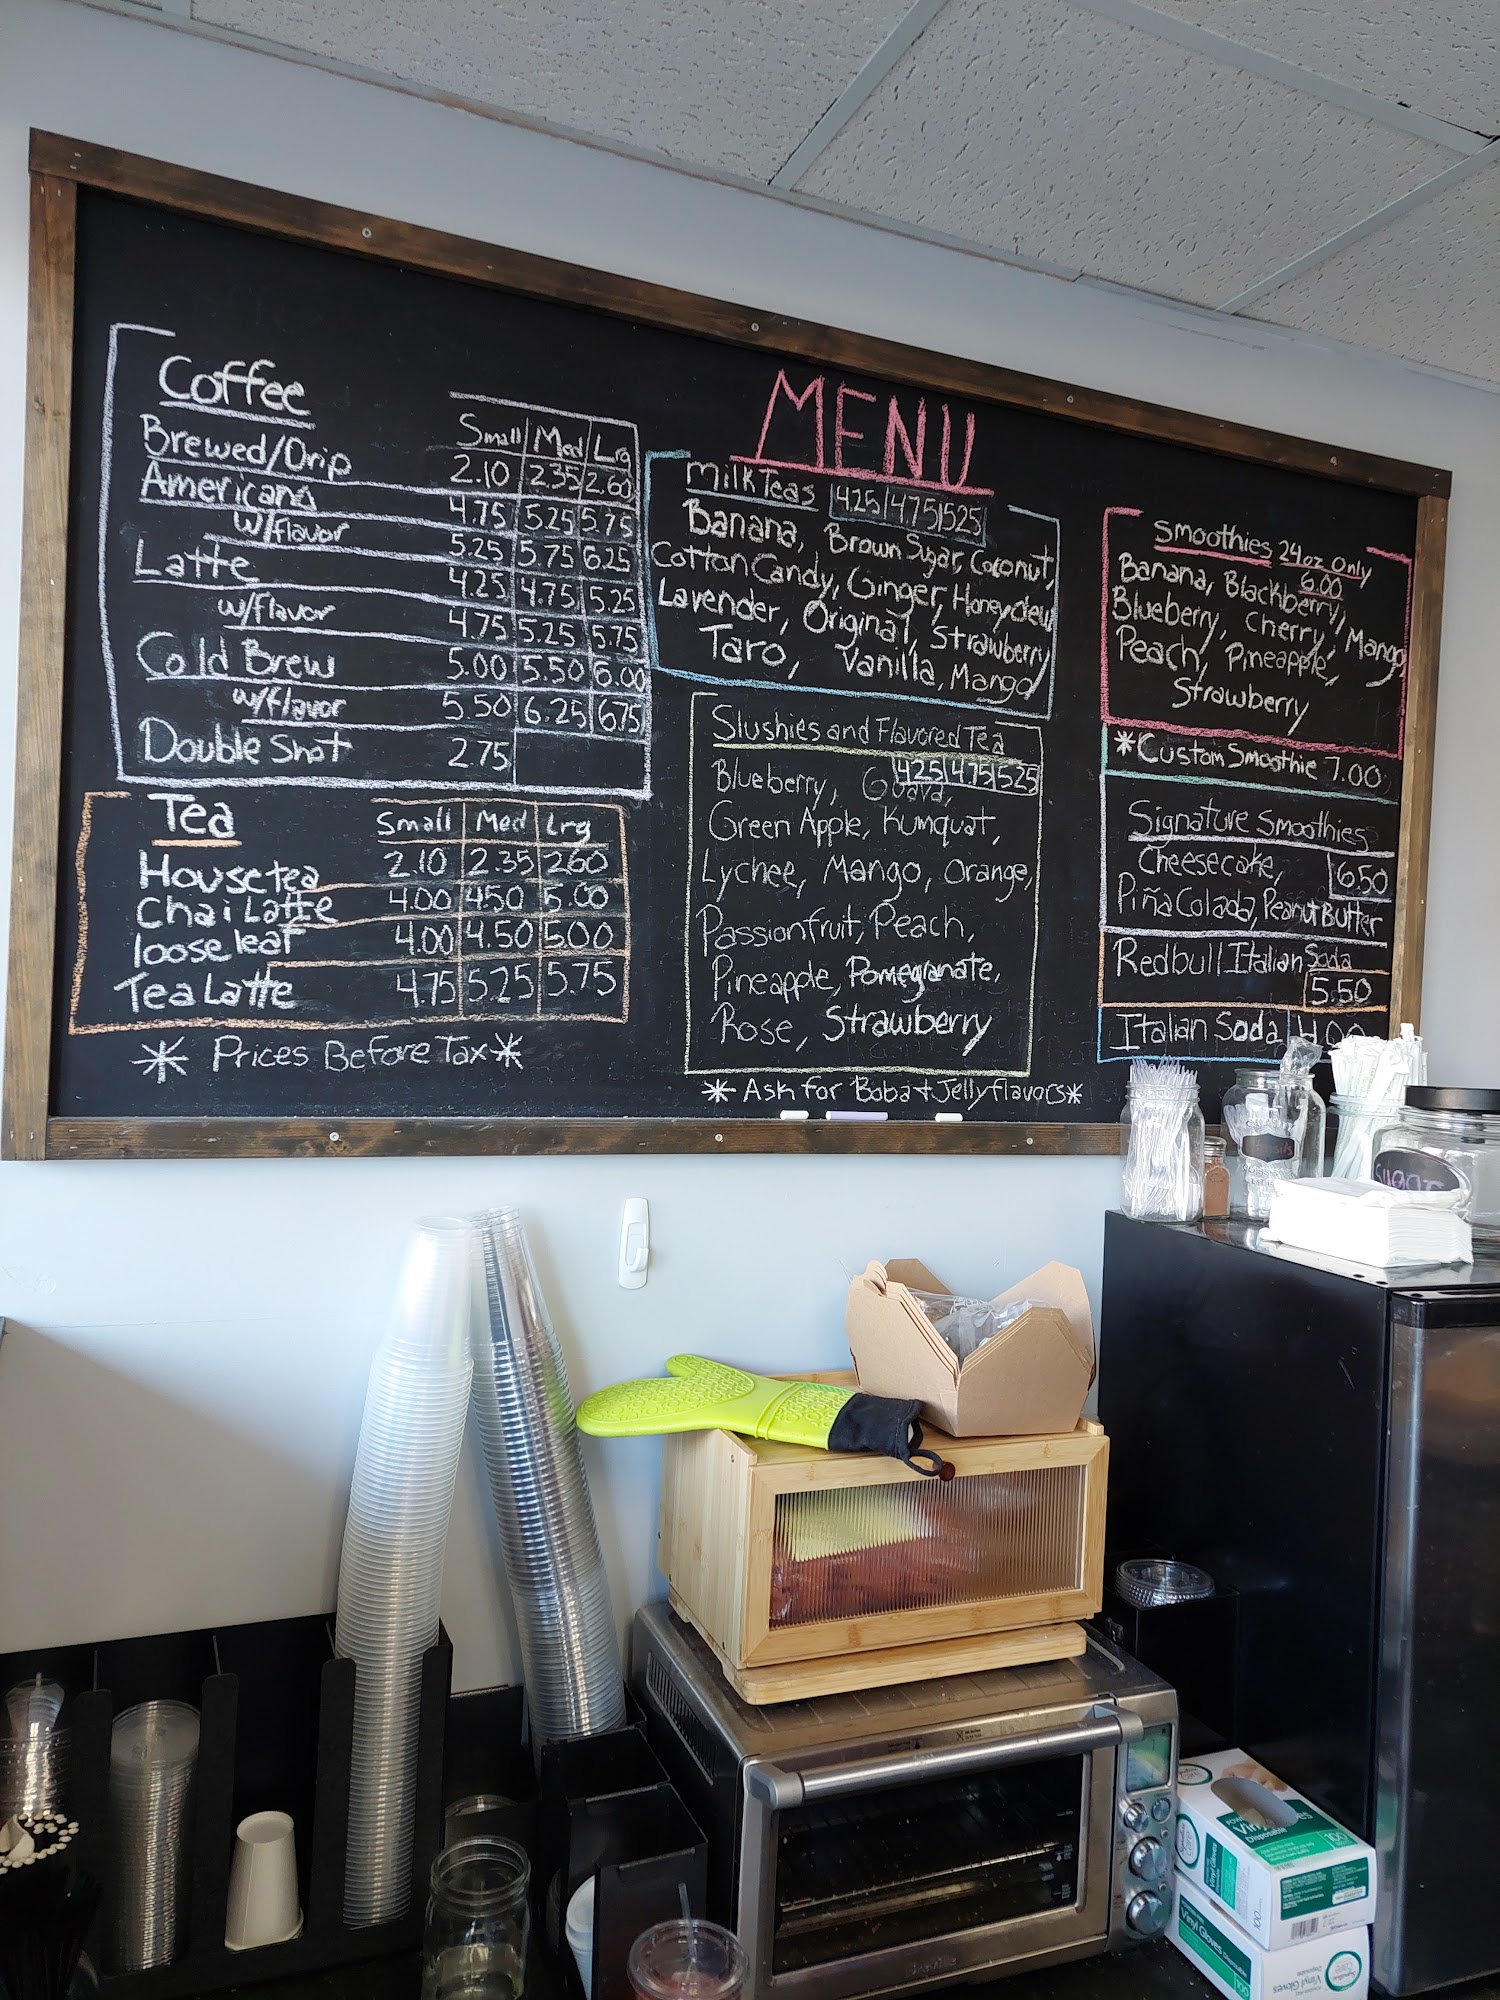 MENU
Coffee
Small Med Lrg
Brewed/Drip 2.10 2.35 2.60
Americano 4.75 5.25 5.75
w/flavor 5.25 5.75 6.25
Latte 4.25 4.75 5.25
w/flavor 4.75 5.25 5.75
Cold Brew 5.00 5.50 6.00
w/flavor 5.50 6.25 6.75
Double Shot 2.75
Tea Small Med Lrg
House tea 2.10 2.35 2.60
Chai Latte 4.00 4.50 5.00
loose leaf 4.00 4.50 5.00
Tea Latte 4.75 5.25 5.75
* Prices Before Tax *
Milk Teas 4.25 4.75 5.25
Banana, Brown Sugar, Coconut,
Cotton Candy, Ginger, Honeydew
Lavender, Original, Strawberry
Taro, Vanilla, Mango
Slushies and Flavored Tea
4.25 4.75 5.25
Blueberry, Guava,
Green Apple, Kumquat,
Lychee, Mango, Orange,
Passionfruit, Peach,
Pineapple, Pomegranate,
Rose, Strawberry
* Ask for Boba + Jelly flavors *
Smoothies 24oz Only
6.00
Banana, Blackberry,
Blueberry, Cherry, Mango,
Peach, Pineapple,
Strawberry
* Custom Smoothie 7.00
Signature Smoothies
Cheesecake, 6.50
Piña Colada, Peanut Butter
Redbull Italian Soda
5.50
Italian Soda 4.00
Sugar
Vinyl Gloves
Disposable
100
Vinyl Gloves
Vinyl Gloves Disposable
100
Vinyl Gloves